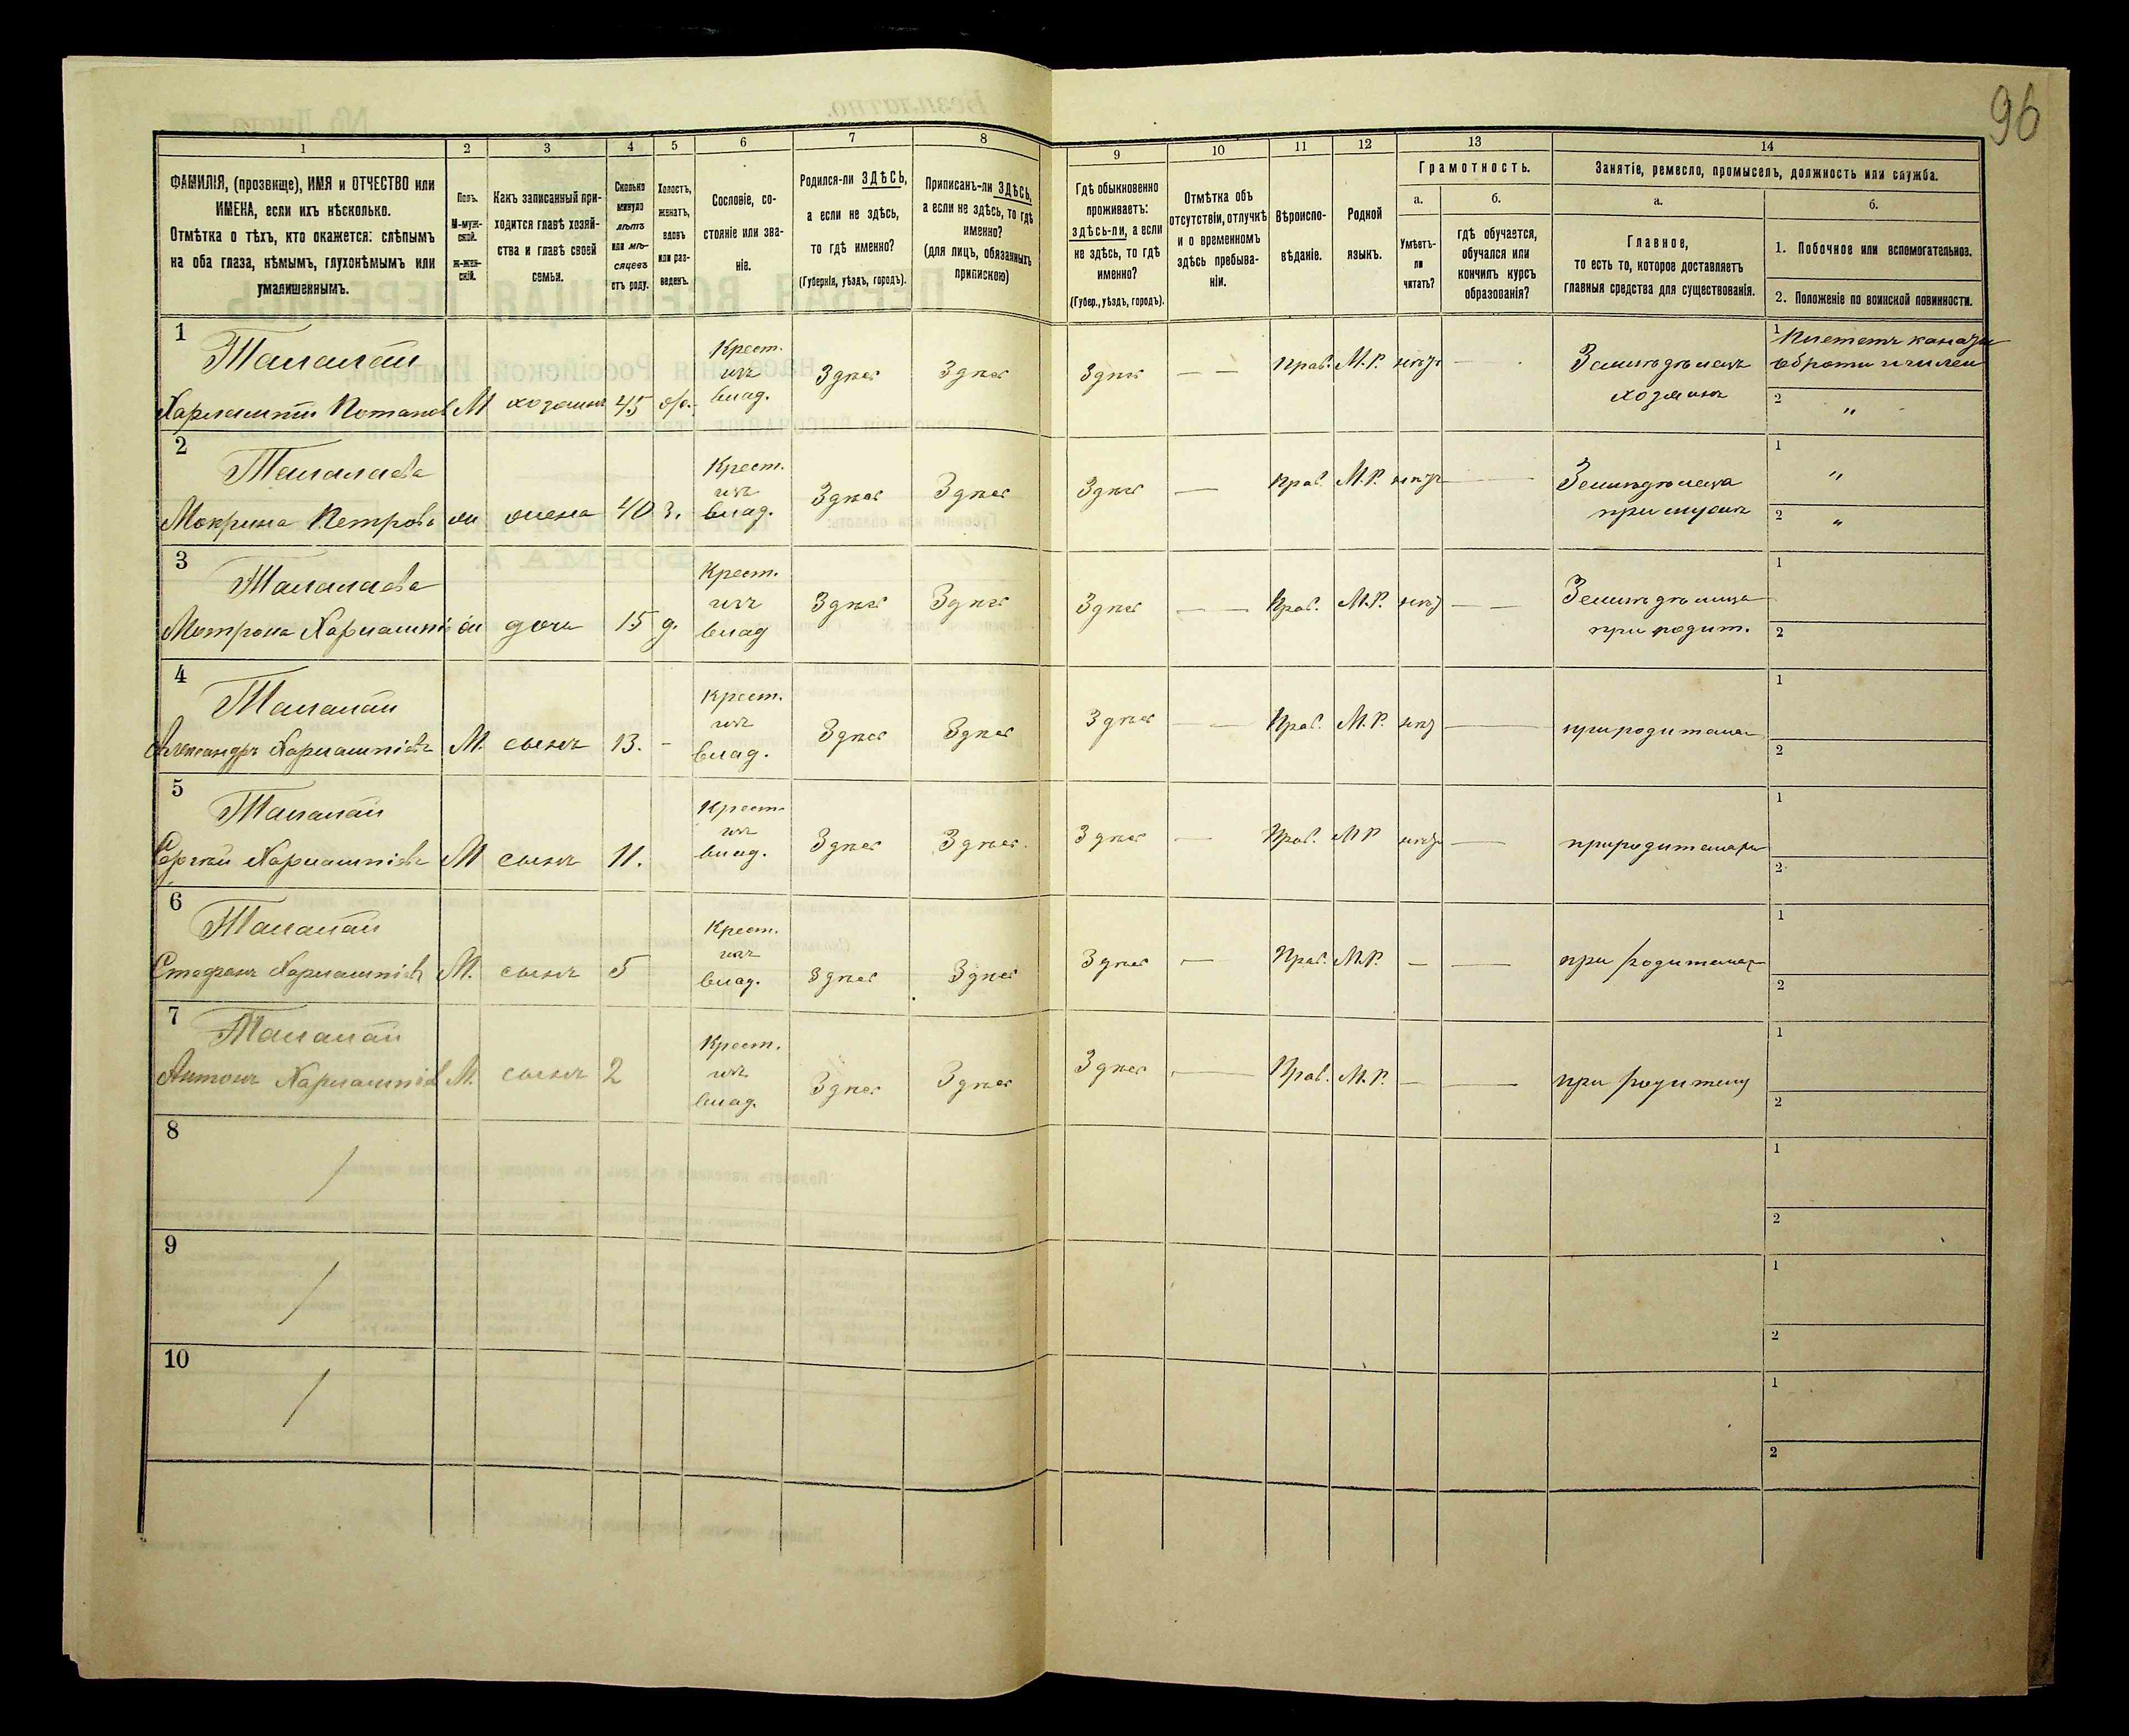 96
1
2
3
4
5
6
7
8
9
10
11
12
13
14
ФАМИЛІЯ, (прозвище), ИМЯ и ОТЧЕСТВО или
ИМЕНА, если ихъ нѣсколько.
Отмѣтка о тѣхъ, кто окажется: слѣпымъ
на оба глаза, нѣмымъ, глухонѣмымъ или
умалишеннымъ.
Полъ.
М-муж-
ской.
Ж-жен-
скій.
Какъ записанный при-
ходится главѣ хозяй-
ства и главѣ своей
семьи.
Сколько
минуло
лѣтъ
или мѣ-
сяцевъ
отъ роду.
Холостъ,
женатъ,
вдовъ
или раз-
веденъ.
Сословіе, со-
стояніе или зва-
ніе.
Родился-ли ЗДѢСЬ,
а если не здѣсь,
то гдѣ именно?
(Губернія, уѣздъ, городъ).
Приписанъ-ли ЗДѢСЬ,
а если не здѣсь, то гдѣ
именно?
(для лицъ, обязанныхъ
припискою)
Гдѣ обыкновенно
проживаетъ:
здѣсь-ли, а если
не здѣсь, то гдѣ
именно?
(Губер., уѣздъ, городъ).
Отмѣтка объ
отсутствіи, отлучкѣ
и о временномъ
здѣсь пребыва-
ніи.
Вѣроиспо-
вѣданіе.
Родной
языкъ.
Грамотность.
а.
Умѣетъ-
ли
читать?
б.
гдѣ обучается,
обучался или
кончилъ курсъ
образованія?
Занятіе, ремесло, промыселъ, должность или служба.
а.
Главное,
то есть то, которое доставляетъ
главныя средства для существованія.
б.
1. Побочное или вспомогательное.
2. Положеніе по воинской повинности.
1
Талалай
Потапов М хозяинъ 45
Крест.
изъ
влад.
Здѣсь Здѣсь Здѣсь — — Прав. М.Р. нѣтъ —
Земледѣлецъ
хозяинъ
1
2 "
2
Талалаева
Мокрина Петрова ж жена 40 з.
Крест.
изъ
влад.
Здѣсь Здѣсь Здѣсь — Прав. М.Р. нѣтъ —
Земледѣлица
при мужѣ
1 "
2 "
3
Талалаева
Мотрона Харлампіе ж дочь 15 д.
Крест.
изъ
влад
Здѣсь Здѣсь Здѣсь — — Прав. М.Р. нѣтъ — —
Земледѣлица
при родит.
1
2
4
Талалай
Александръ Харлампіевъ М. сынъ 13. -
Крест.
изъ
влад.
Здѣсь Здѣсь Здѣсь — — Прав. М.Р. нѣтъ —
при родителях
1
2
5
Талалай
Сергѣй Харлампіевъ М сынъ 11.
Крест.
изъ
влад.
Здѣсь Здѣсь Здѣсь — Прав. М.Р нѣтъ —
при родителяхъ
1
2
6
Талалай
Стефанъ Харлампіевъ М. сынъ 5
Крест.
изъ
влад.
Здѣсь Здѣсь Здѣсь — Прав. М.Р. — —
при родителях
1
2
7
Талалай
Антонъ Харлампіев М. сынъ 2
Крест.
изъ
влад.
Здѣсь Здѣсь Здѣсь — Прав. М.Р. — —
при родителях
1
2
8
1
2
9
1
2
10
1
2